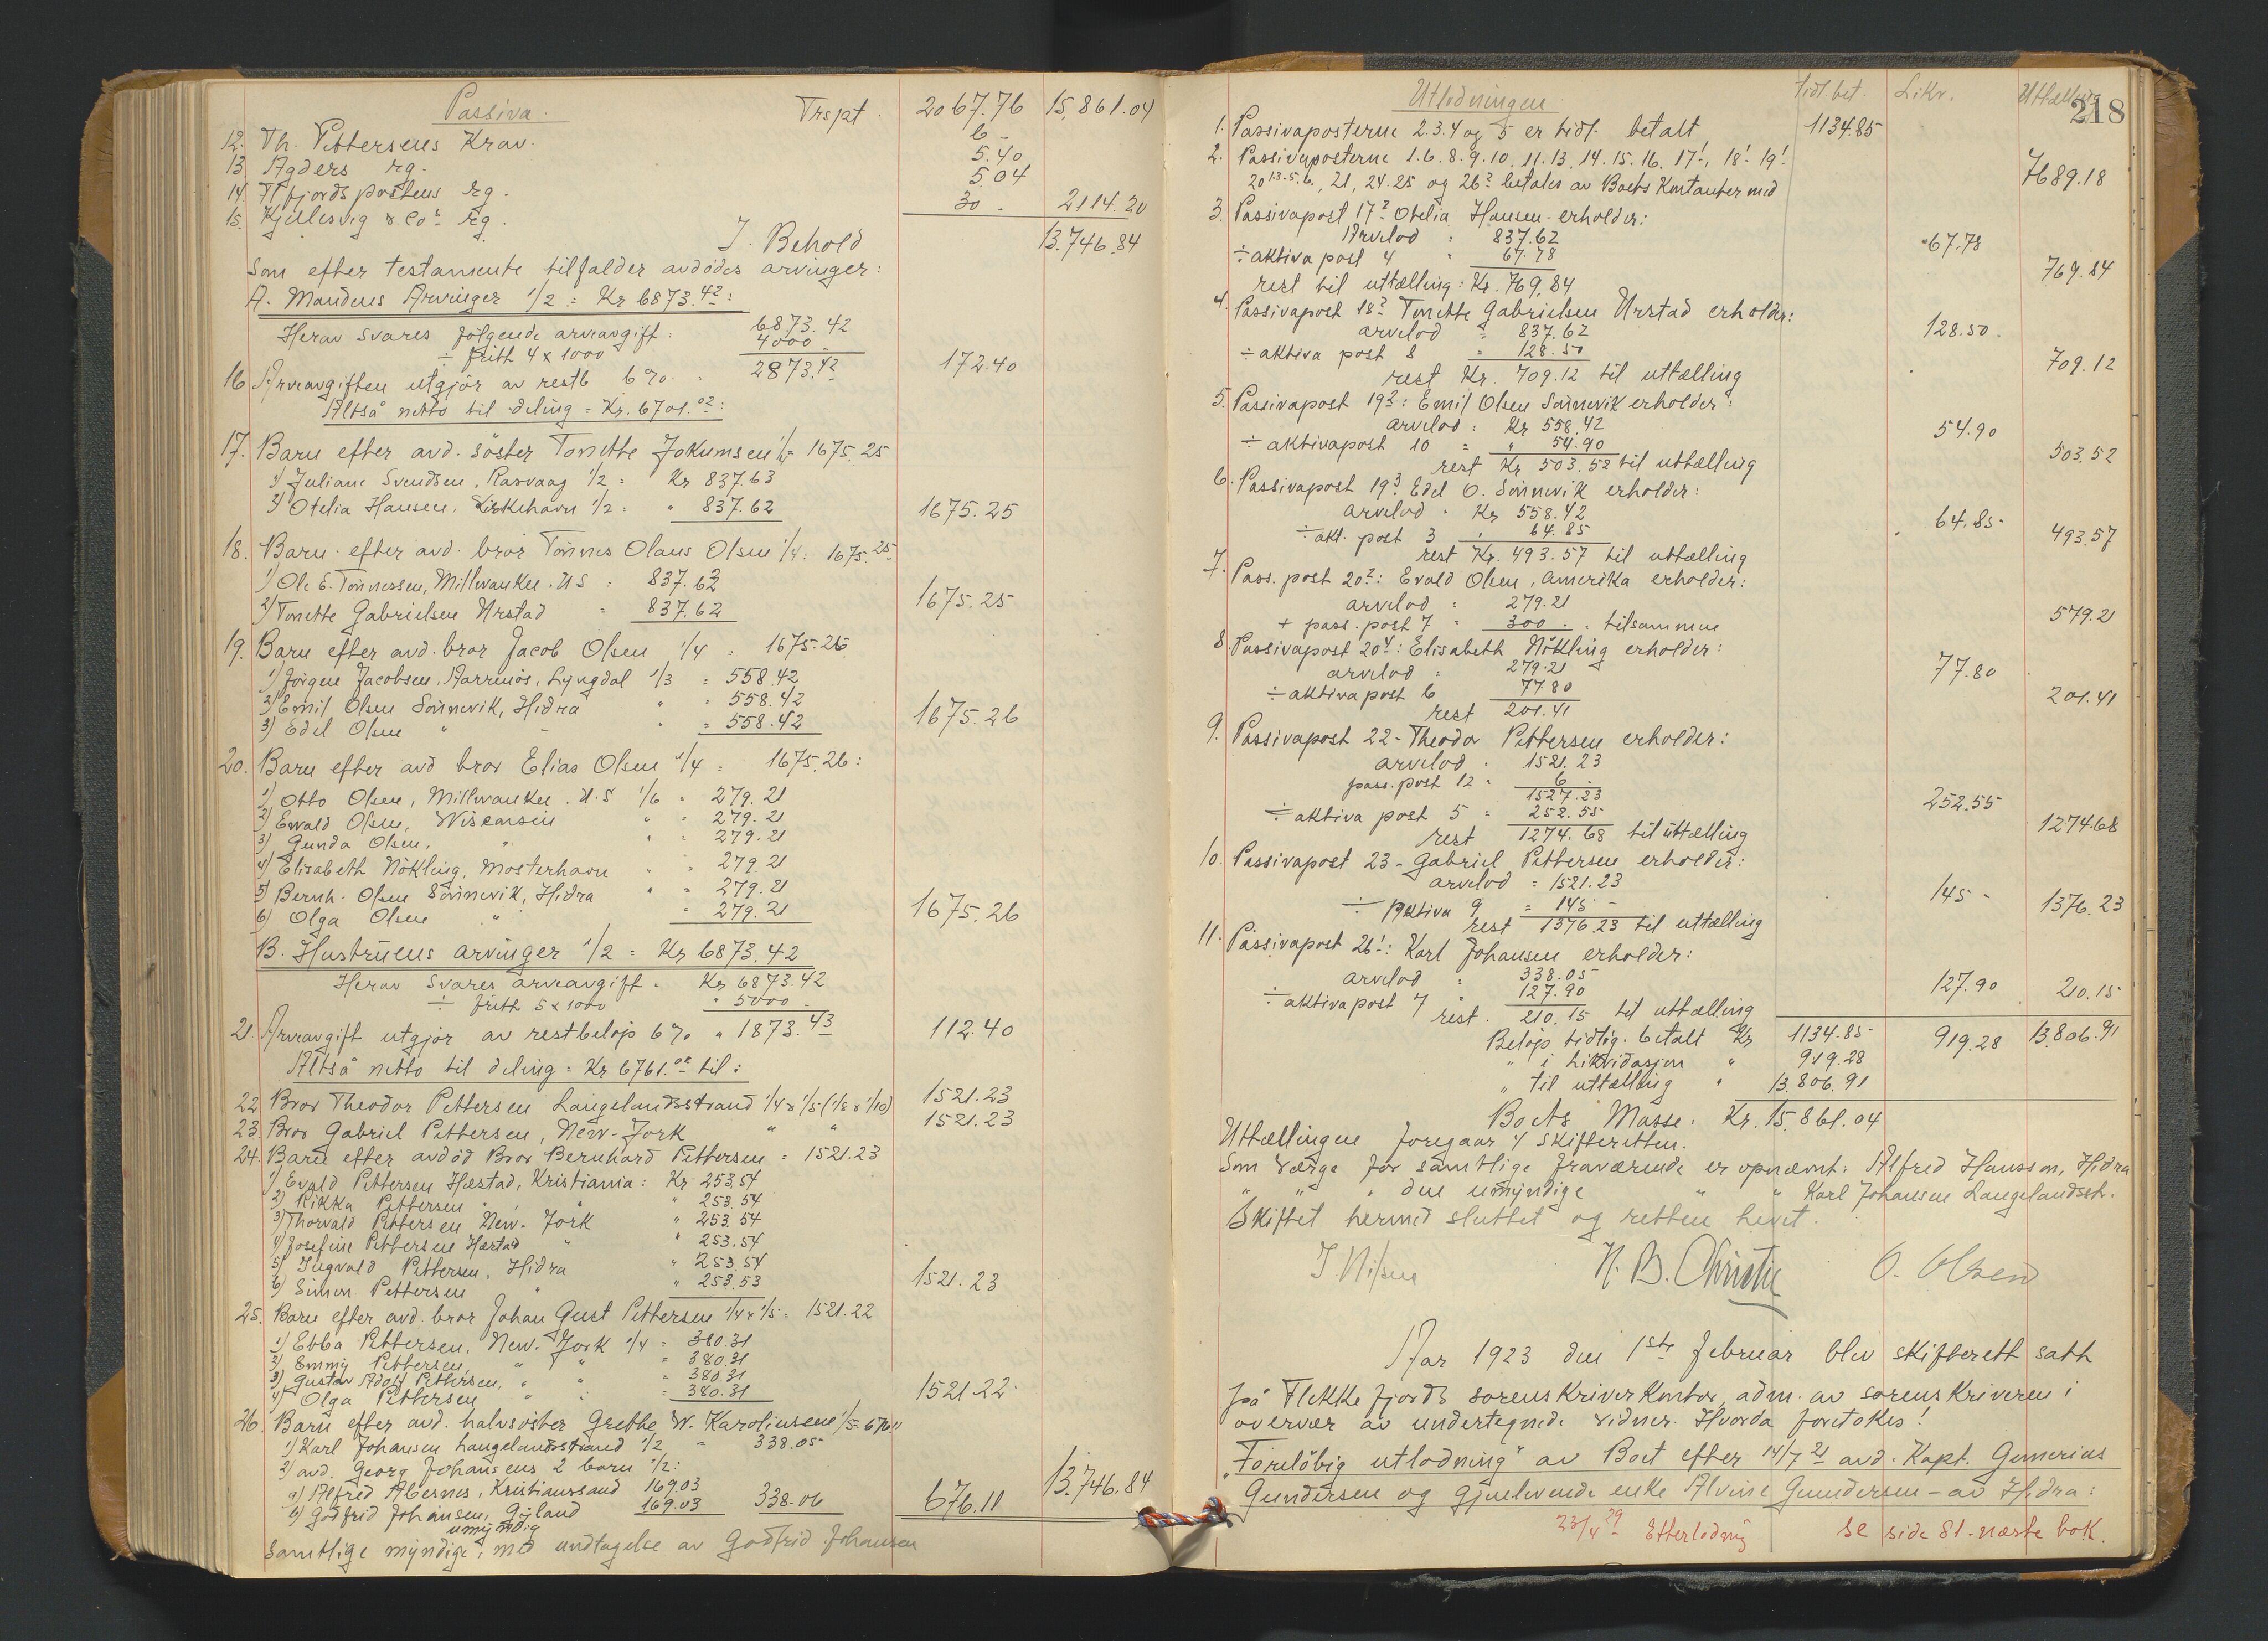 Passiva. Trspt. 2067.76 15,861.04
12. Th. Pettersens Krav. 6 -
13. Agders rg. 5.40
14. Fl.fjords postens rg. 5.04
15. Kjellesvig & Co's rg. 30 - 2114.20
I Behold 13.746.84
Som efter testamente tilfalder avdødes arvinger:
A. Mandens Arvinger 1/2 = Kr 6873.42:
Herav svares følgende arveavgift: 6873.42
÷ fritt 4 x 1000 4000 -
2873.42
16. Arveavgiften utgjør av restb 6%. = 172.40
Altså netto til deling = Kr. 6701.02:
17. Barn efter avd. søster Tonette Jokumsen 1/4 = 1675.25
1) Juliane Svendsen, Rasvaag 1/2 = Kr 837.63
2) Otelia Hansen, Kirkehavn 1/2 = " 837.62 1675.25
18. Barn efter avd. bror Tønnes Olaus Olsen 1/4: 1675.25
1) Ole E. Tønnessen, Millwaukee. U S = 837.63
2) Tonette Gabrielsen Urstad = 837.62 1675.25
19. Barn efter avd. bror Jacob Olsen 1/4 = 1675.26
1) Jørgen Jacobsen, Aarrenøs, Lyngdal 1/3 = 558.42
2) Emil Olsen Sønnevik, Hidra " " 558.42
3) Edel Olsen " - " = 558.42 1675.26
20. Barn efter avd bror Elias Olsen 1/4 = 1675.26:
1) Otto Olsen, Millwaukee. U.S 1/6 = 279.21
2) Ewald Olsen, Wisconsin " " 279.21
3) Gunda Olsen, " " " 279.21
4) Elisabeth Nökling, Mosterhavn " " 279.21
5) Bernh. Olsen Sønnevik, Hidra " " 279.21
6) Olga Olsen " " 279.21 1675.26
B. Hustruens arvinger 1/2 = Kr 6873.42
Herav svares arveavgift = Kr 6873.42
÷ fritt 5 x 1000 " 5000 -
21. Arveavgift utgjør av restbeløp 6% " 1873.43 112.40
Altså netto til deling = Kr 6761.02 til:
22. Bror Theodor Pettersen Langelandsstrand 1/4 & 1/5 (1/8 & 1/10) 1521.23
23. Bror Gabriel Pettersen, New-York " " 1521.23
24. Barn efter avdød Bror Bernhard Pettersen = 1521.23
1) Evald Pettersen Hæstad, Kristiania: Kr 253.54
2) Rikka Pettersen " " " 253.54
3) Thorvald Pettersen New-York " 253.54
4) Josefine Pettersen Hæstad " " 253.54
5) Ingvald Pettersen, Hidra " 253.54
6) Simon Pettersen " " 253.53 1521.23
25. Barn efter avd. bror Johan Gust Pettersen 1/4 x 1/5 = 1521.22
1) Ebba Pettersen, New-York 1/4 = 380.31
2) Emmy Pettersen, " " = 380.31
3) Gustav Adolf Pettersen, " " = 380.31
4) Olga Pettersen " " = 380.31 1521.22
26. Barn efter avd. halvsøster Grethe W. Karoliussen 1/5 = 676.11
1) Karl Johansen Langelandsstrand 1/2 = 338.05
2) avd. Georg Johansens 2 barn 1/2:
a) Alfred Abesnes, Kristianssand 169.03
b) Godfrid Johansen, Gyland 169.03 338.06 676.11 13.746.84
umyndig
Samtlige myndige, med undtagelse av Godfrid Johansen
Utlodningen tidl. bet. Likv. Uttælling 218
1. Passivaposterne 2.3.4 og 5 er tidl. betalt 1134.85
2. Passivaposterne 1.6.8.9.10.11.13.14.15.16.17¹, 18¹ 19¹
20 1.3.5.6., 21, 24.25 og 26² betales av Boets Kontanter med 7689.18
3. Passivapost 17² Otelia Hansen erholder:
Arvelod = 837.62
÷ aktiva post 4 " 67.78 67.78
rest til uttælling: Kr. 769.84 769.84
4. Passivapost 18² Tonette Gabrielsen Urstad erholder:
arvelod = 837.62
÷ aktiva post 8 = 128.50 128.50
rest Kr. 709.12 til uttælling 709.12
5. Passivapost 19²: Emil Olsen Sønnevik erholder:
arvelod = Kr 558.42
÷ aktivapost 10 = " 54.90 54.90
rest Kr 503.52 til uttælling 503.52
6. Passivapost 19³ Edel O. Sønnevik erholder:
arvelod " Kr 558.42
÷ akt. post 3 : 64.85 64.85
rest Kr. 493.57 til uttælling 493.57
7. Pass. post 20²: Evald Olsen, Amerika erholder:
arvelod = 279.21
+ pass. post 7 = 300 - = tilsammen 579.21
8. Passivapost 20⁴: Elisabeth Nökling erholder:
arvelod = 279.21
÷ aktiva post 6 77.80 77.80
rest 201.41 201.41
9. Passivapost 22 - Theodor Pettersen erholder:
arvelod = 1521.23
pass. post 12 = 6 -
1527.23
÷ aktiva post 5 = 252.55 252.55
rest 1274.68 til uttælling 1274.68
10. Passivapost 23 - Gabriel Pettersen erholder:
arvelod = 1521.23
÷ Aktiva 9 = 145 - 145 -
rest 1376.23 til uttælling 1376.23
11. Passivapost 26¹: Karl Johansen erholder:
arvelod = 338.05
÷ aktivapost 7 " 127.90 127.90
rest. 210.15 til uttælling 210.15
Beløp tidlig. betalt Kr 1134.85 919.28 13.806.91
" i Likvidasjon " 919.28
" til uttælling " 13.806.91
Boets Masse: Kr. 15,861.04
Uttællingen foregaar i skifteretten.
Som værge for samtlige fraværende er opnævnt: Alfred Hansson, Hidra
" " " den umyndige " " Karl Johansen Langelandsstr.
Skiftet hermed sluttet og retten hevet.
J Nilsen N. B. Christie O. Olsen
Aar 1923 den 1ste februar blev skifterett satt
på Flekkefjords sorenskriverkontor, adm. av sorenskriveren i
overvær av undertegnede vidner. Hvorda foretokes:
"Foreløbig utlodning" av Boet efter 14/7 21 avd. Kapt. Gunerius
Gundersen og gjenlevende enke Alvine Gundersen - av Hidra:
23/4 29 Etterlodning se side 81 - næste bok.